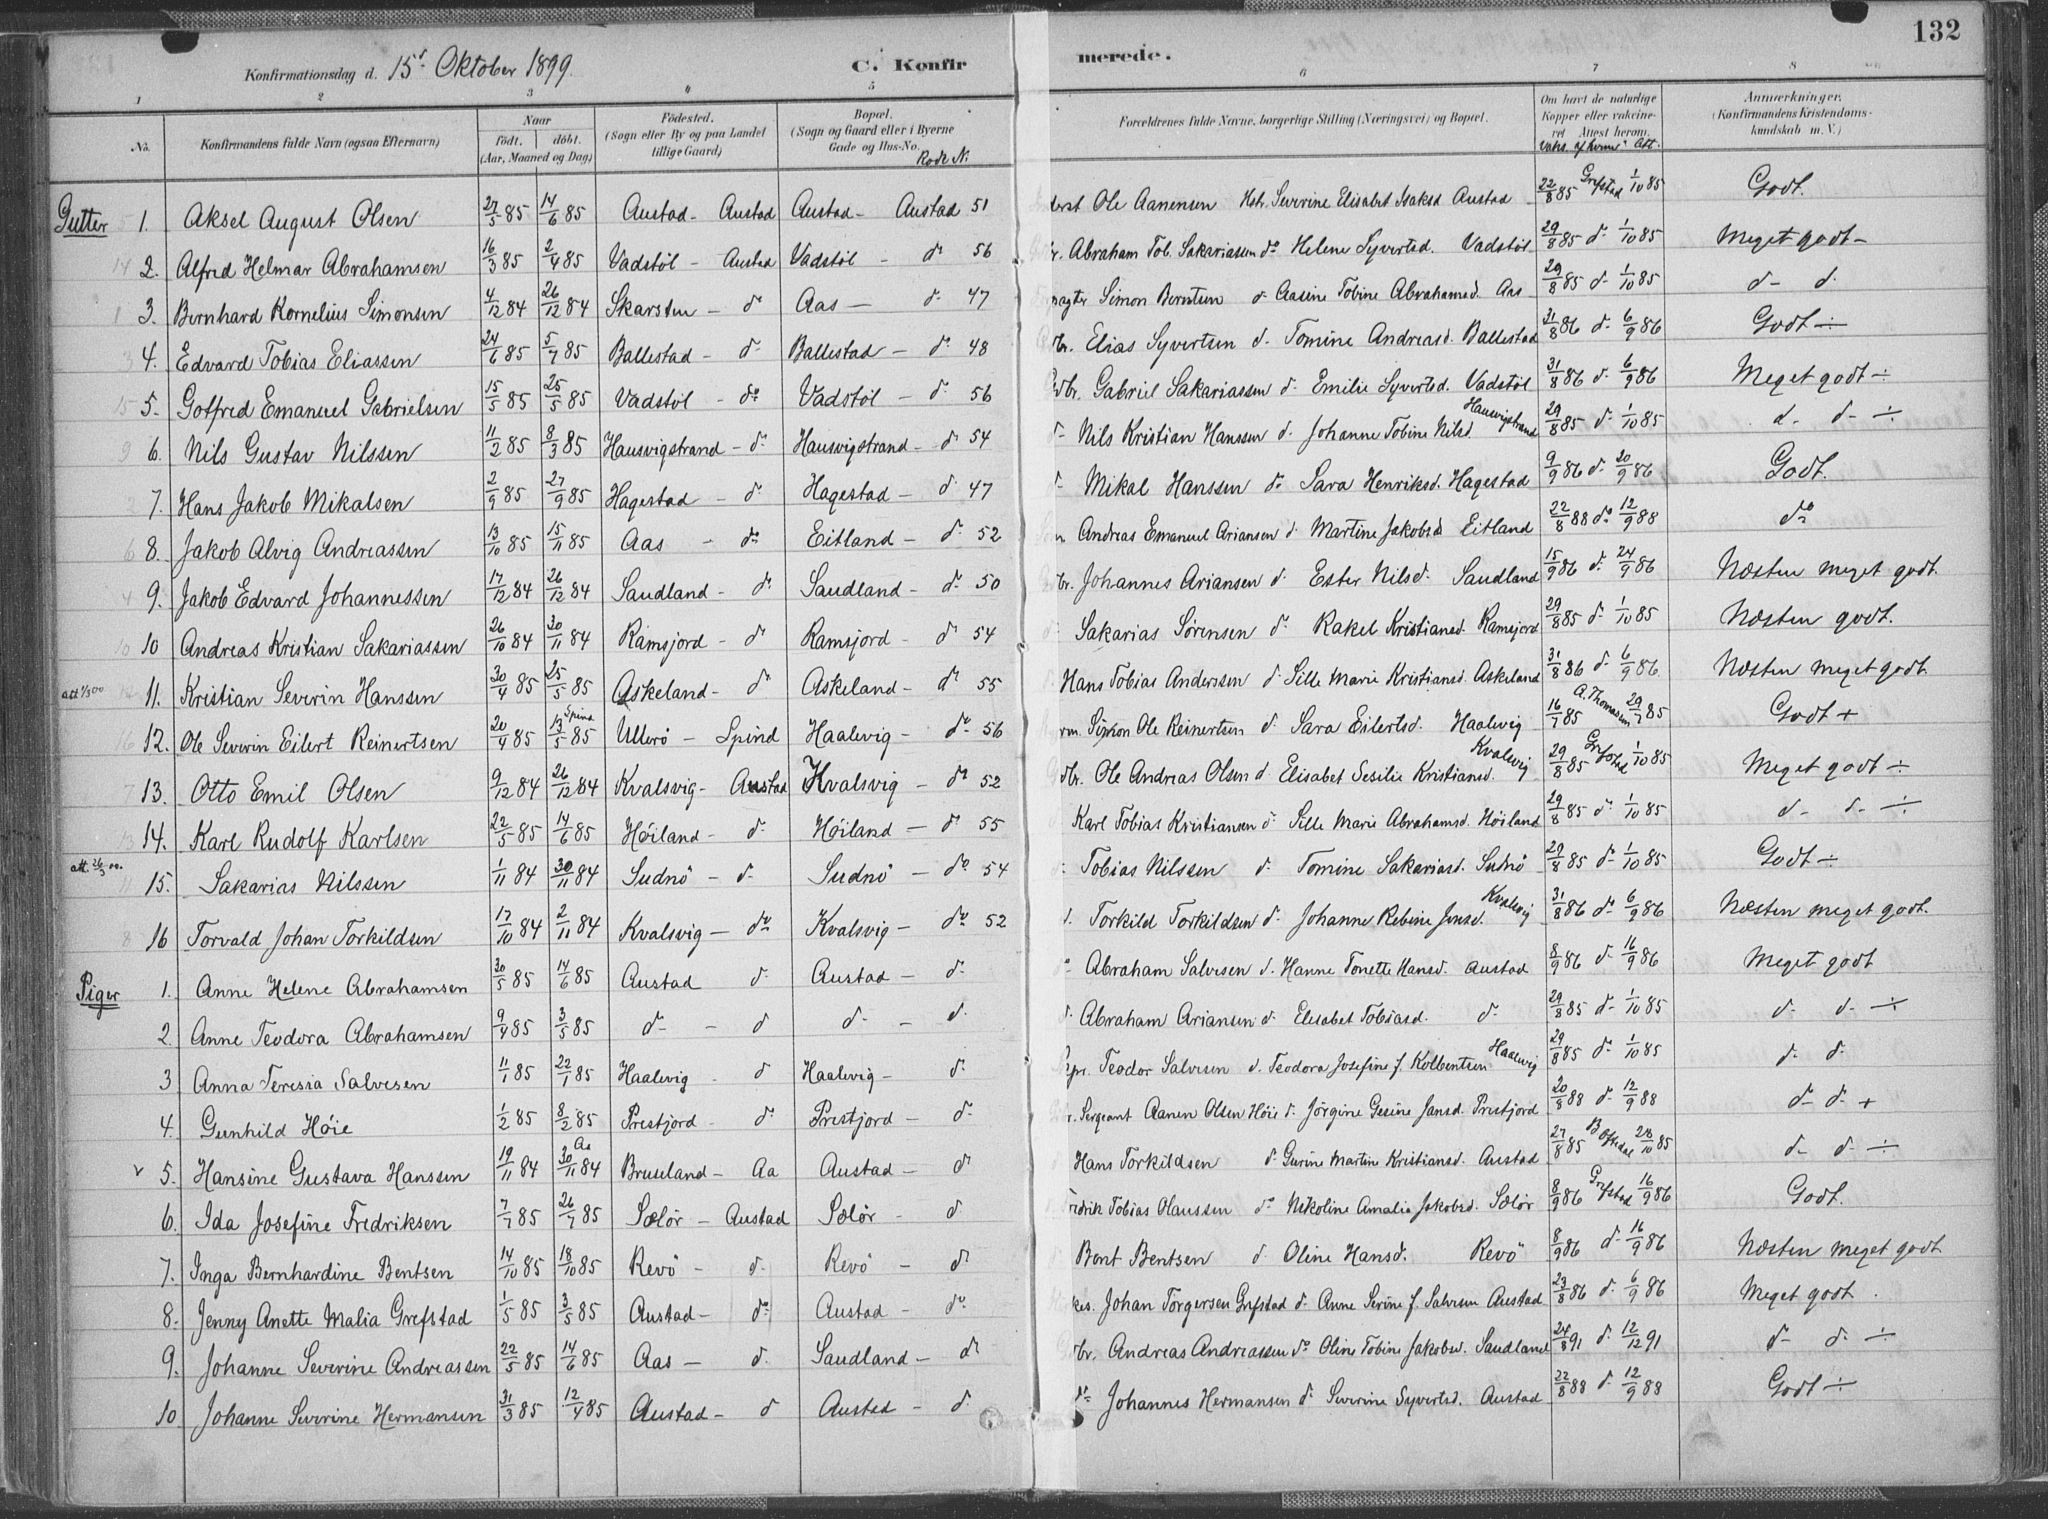 132
Konfirmationsdag d. 15d Oktober 1899. C. Konfir merede.
1 2 3 4 5 6 7 8
No. Konfirmandens fulde Navn (ogsaa Efternavn) Naar født. døbt. (Aar, Maaned og Dag) Födested. (Sogn eller By og paa Landet tillige Gaard) Bopæl. (Sogn og Gaard eller i Byerne Gade og Hus-No. Rode N. Forældrenes fulde Navne, borgerlige Stilling (Næringsvei) og Bopæl. Om havt de naturlige Kopper eller vakcineret. Attest herom. Vaks. af hvem Att. Anmærkninger. (Konfirmandens Kristendomskundskab m. V.)
Gutter 1. Aksel August Olsen 27/5 85 14/6 85 Austad - Austad Austad - Austad 51 Ole Aanensen Hstr. Severine Elisabet Isaksd Austad 22/8 85 Grefstad 1/10 85 Godt.
2. Alfred Helmar Abrahamsen 16/3 85 2/4 85 Vadstöl - Austad Vadstöl - do 56 Abraham Tob. Sakariassen do Helene Syvertsd. Vadstöl 29/8 85 do 1/10 85 Meget godt -
3. Bernhard Kornelius Simonsen 4/12 84 26/12 84 Skarsten - do Aas - do 47 Simon Berntsen do Aasine Tobine Abrahamsd. Aas 29/8 85 d- 1/10 85 d- d.
4. Edvard Tobias Eliassen 24/6 85 5/7 85 Ballestad - do Ballestad - do 48 Elias Syvertsen d. Tomine Andreasd. Ballestad 31/8 86 d- 6/9 86 Godt ÷
5. Gotfred Emanuel Gabrielsen 15/5 85 25/5 85 Vadstöl - do Vadstöl - do 56 Gdbr. Gabriel Sakariassen d. Emilie Syvertsd. Vadstöl 31/8 86 d. 6/9 86 Meget godt ÷
6. Nils Gustav Nilssen 11/2 85 8/3 85 Hausvigstrand - do Hausvigstrand - do 54 d- Nils Kristian Hanssen d. Johanne Tobine Nilsd. Hausvigstrand 29/8 85 d- 1/10 85 d- d- ÷
7. Hans Jakob Mikalsen 2/9 85 27/9 85 Hagestad - do Hagestad - do 47 d- Mikal Hanssen do Sara Henriksd. Hagestad 9/9 86 d- 20/9 86 Godt.
8. Jakob Alvig Andreassen 13/10 85 15/11 85 Aas - do Eitland - do 52 Andreas Emanuel Ariansen d. Martine Jakobsd Eitland 22/8 88 do 12/9 88 do
9. Jakob Edvard Johannessen 17/12 84 26/12 84 Saudland - do Saudland - do 50 Johannes Ariansen d. Ester Nilsd. Saudland 15/9 86 d. 24/9 86 Næsten meget godt.
10 Andreas Kristian Sakariassen 26/10 84 30/11 84 Ramsjord - do Ramsjord - do 54 Sakarias Sørensen do Rakel Kristiansd. Ramsjord 29/8 85 d- 1/10 85 Næsten godt.
11. Kristian Severin Hanssen 30/4 85 25/5 85 Askeland - do Askeland - do 55 Hans Tobias Anderssen d. Sille Marie Kristiansd. Askeland 31/8 86 d- 6/9 86 Næsten meget godt.
12. Ole Severin Eilert Reinertsen 20/4 85 Spind 13/5 85 Ullerö - Spind Haalevig - do 56 Ole Reinertsen d. Sara Eilertsd. Haalevig 16/7 85 A. Thomassen 29/7 85 Godt +
13. Otto Emil Olsen 9/12 84 26/12 84 Kvalsvig - Austad Kvalsvig - do 52 Gdbr. Ole Andreas Olsen d. Elisabet Sesilie Kristiansd. Kvalsvig 29/8 85 Grefstad 1/10 85 Meget godt ÷
14. Karl Rudolf Karlsen 22/5 85 14/6 85 Höiland - do Höiland - do 55 Karl Tobias Kristiansen do Sille Marie Abrahamsd. Höiland 29/8 85 do 1/10 85 d- d- ÷
att. 26/3 00. 15. Sakarias Nilssen 1/11 84 30/11 84 Sudnö - d- Sudnö - do 54 Tobias Nilssen d. Tomine Sakariasd. Sudnö 29/8 85 do 1/10 85 Godt ÷
16 Torvald Johan Torkildsen 17/10 84 2/11 84 Kvalsvig - do Kvalsvig - do 52 d. Torkild Torkildsen d. Johanne Rebine Jensd. Kvalsvig 31/8 86 do 6/9 86 Næsten meget godt.
Piger 1. Anne Helene Abrahamsen 30/5 85 14/6 85 Austad d. Austad - d. Abraham Salvesen d. Hanne Tonette Hansd. Austad 8/9 86 d- 16/9 86 Meget godt
2. Anne Teodora Abrahamsen 9/4 85 3/5 85 d- - d d- - d. d. Abraham Ariansen d. Elisabet Tobiasd. d- 29/8 85 d- 1/10 85 d- d- ÷
3 Anna Teresia Salvesen 11/1 85 22/1 85 Haalevig - d Haalevig - d. Teodor Salvesen d. Teodora Josefine f. Kolbentsen Haalevig 29/8 85 d- 1/10 85 d- d-
4. Gunhild Höie 1/2 85 8/2 85 Prestjord - d. Prestjord - d. Sergeant Aanen Olsen Höie d. Jörgine Gesine Jansd. Prestjord 20/8 88 d- 12/9 88 d- d- +
v 5. Hansine Gustava Hanssen 19/11 84 Aa 30/11 84 Bruseland - Aa Austad - d Hans Torkildsen d. Gurine Martine Kristiansd. Austad 27/8 85 28/10 85 d- d- ÷
6. Ida Josefine Fredriksen 7/7 85 26/7 85 Sælör - Austad Sælör - d Fredrik Tobias Olaussen do Nikoline Amalia Jakobsd. Sælör 8/9 86 Grefstad 16/9 86 Godt.
7. Inga Bernhardine Bentsen 14/10 85 18/10 85 Revö - d. Revö - d. Bent Bentsen d. Oline Hansd. Revö 8/9 86 d- 16/9 86 Næsten meget godt
8. Jenny Anette Malia Grefstad 1/5 85 3/5 85 Austad - do Austad - do Johan Torgersen Grefstad d. Anne Serine f. Salvesen Austad 23/8 86 d. 6/9 86 Meget godt.
9. Johanne Severine Andreassen 22/5 85 14/6 85 Aas - d. Saudland - d. Andreas Andreassen do Oline Tobine Jakobsd. Saudland 24/8 91 d. 12/12 91 d- d- ÷
10 Johanne Severine Hermansen 31/3 85 12/4 85 Austad - d Austad - d. d- Johannes Hermansen d. Severine Syvertsd. Austad 22/8 88 d- 12/9 88 Godt ÷